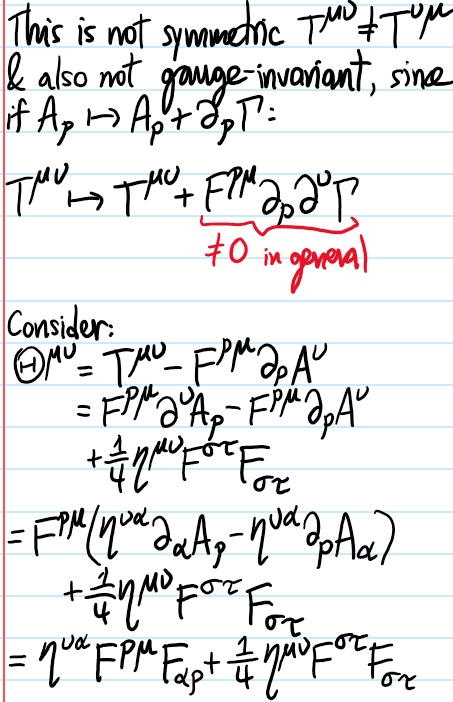 This is not symmetric T^{μν} ≠ T^{νμ}
& also not gauge-invariant, since
if A_ρ ↦ A_ρ + ∂_ρ Γ:
T^{μν} ↦ T^{μν} + F^{ρμ} ∂_ρ ∂^ν Γ
≠ 0 in general
Consider:
Θ^{μν} = T^{μν} - F^{ρμ} ∂_ρ A^ν
= F^{ρμ} ∂^ν A_ρ - F^{ρμ} ∂_ρ A^ν
+ 1/4 η^{μν} F^{στ} F_{στ}
= F^{ρμ} (η^{να} ∂_α A_ρ - η^{να} ∂_ρ A_α)
+ 1/4 η^{μν} F^{στ} F_{στ}
= η^{να} F^{ρμ} F_{αρ} + 1/4 η^{μν} F^{στ} F_{στ}